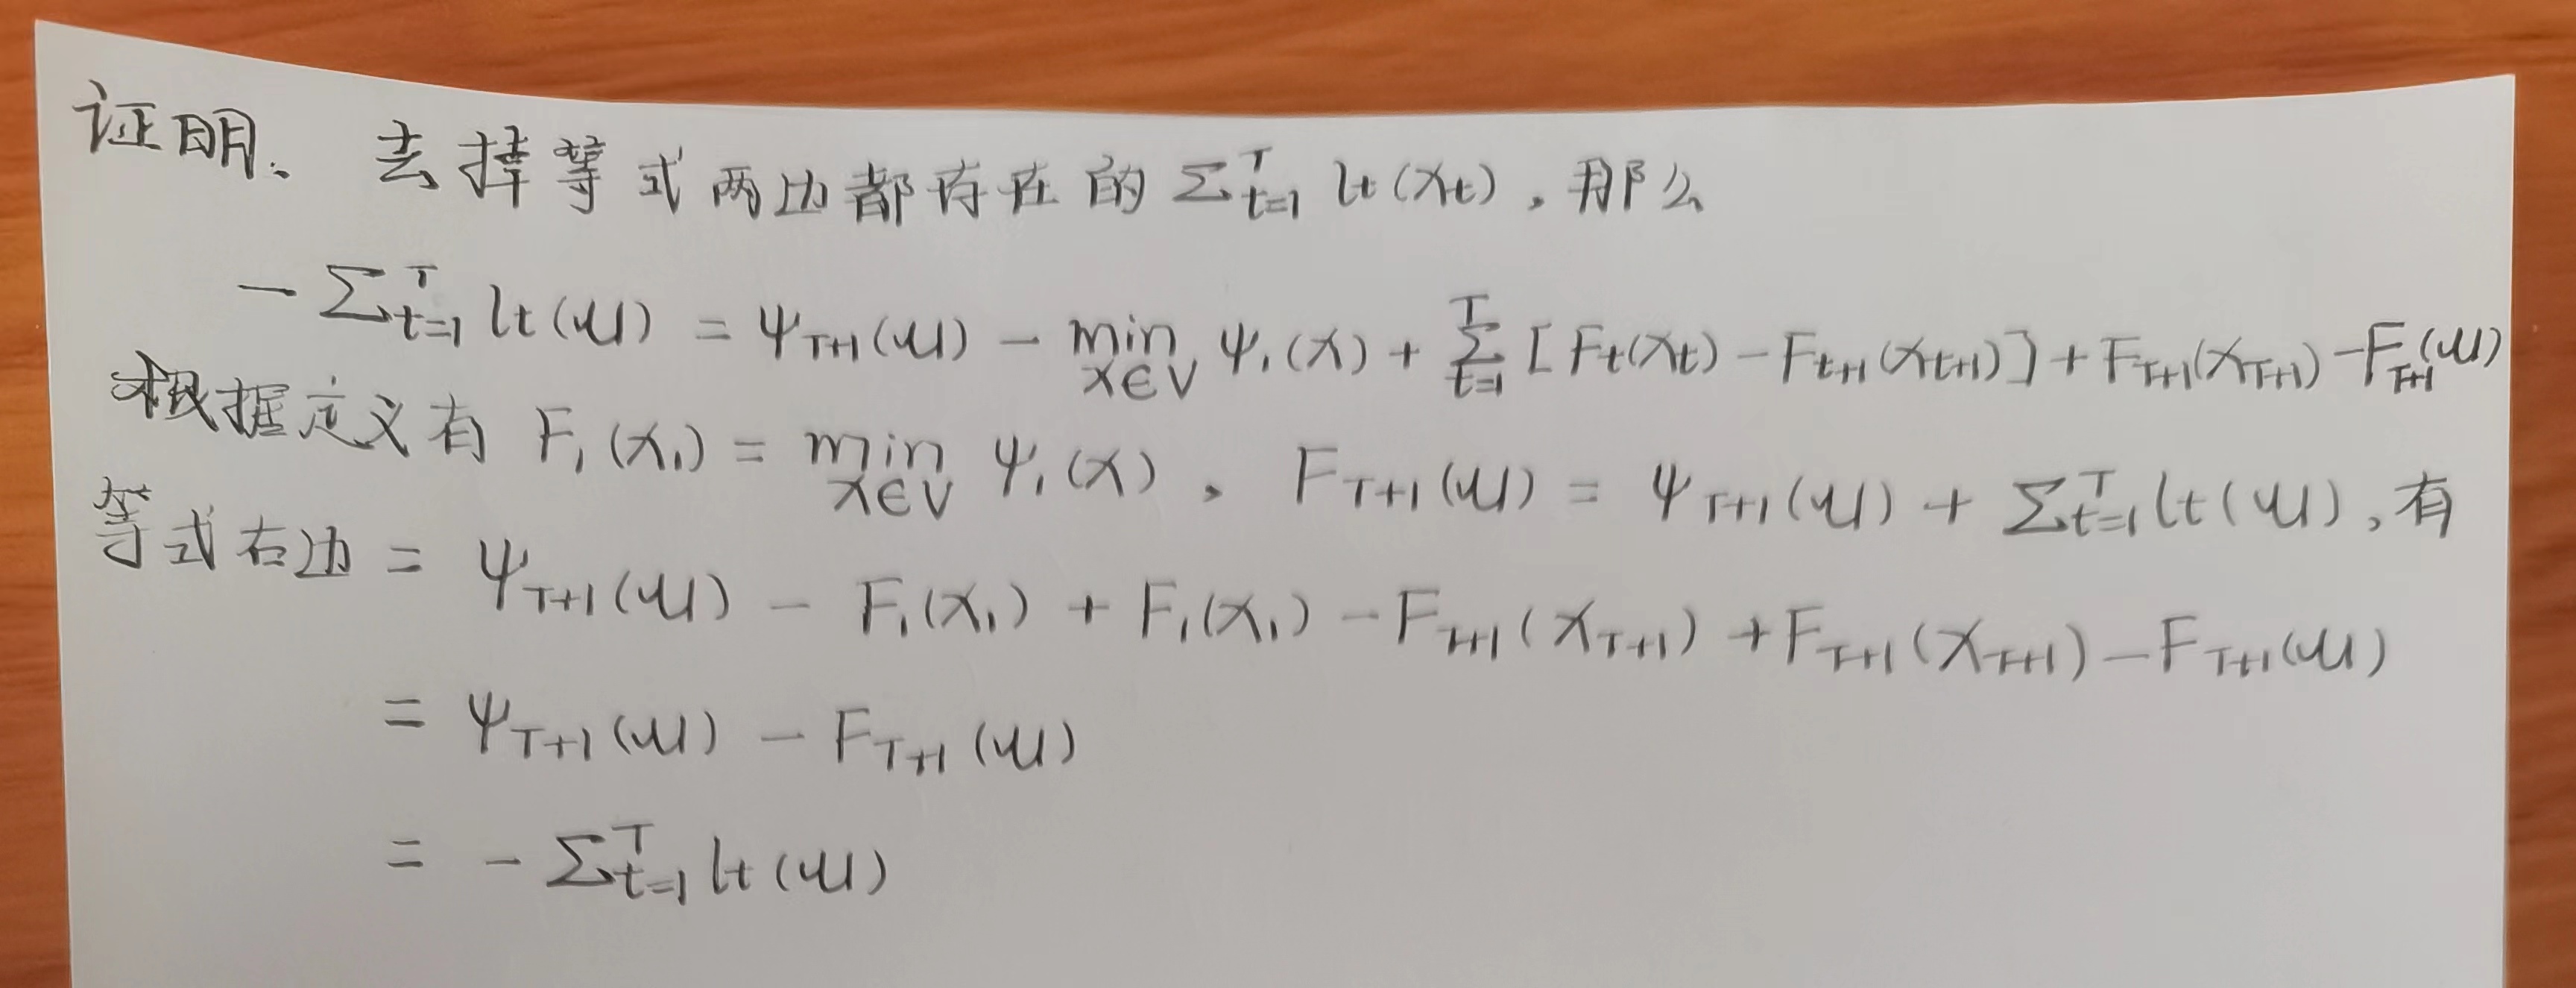 证明、去掉等式两边都存在的 Σ_{t=1}^{T} lt(xt)，那么
- Σ_{t=1}^{T} lt(u) = ψ_{T+1}(u) - min_{x∈V} ψ₁(x) + Σ_{t=1}^{T} [Ft(xt) - F_{t+1}(x_{t+1})] + F_{T+1}(x_{T+1}) - F_{T+1}(u)
根据定义有 F₁(x₁) = min_{x∈V} ψ₁(x)，F_{T+1}(u) = ψ_{T+1}(u) + Σ_{t=1}^{T} lt(u)，有
等式右边 = ψ_{T+1}(u) - F₁(x₁) + F₁(x₁) - F_{T+1}(x_{T+1}) + F_{T+1}(x_{T+1}) - F_{T+1}(u)
= ψ_{T+1}(u) - F_{T+1}(u)
= - Σ_{t=1}^{T} lt(u)